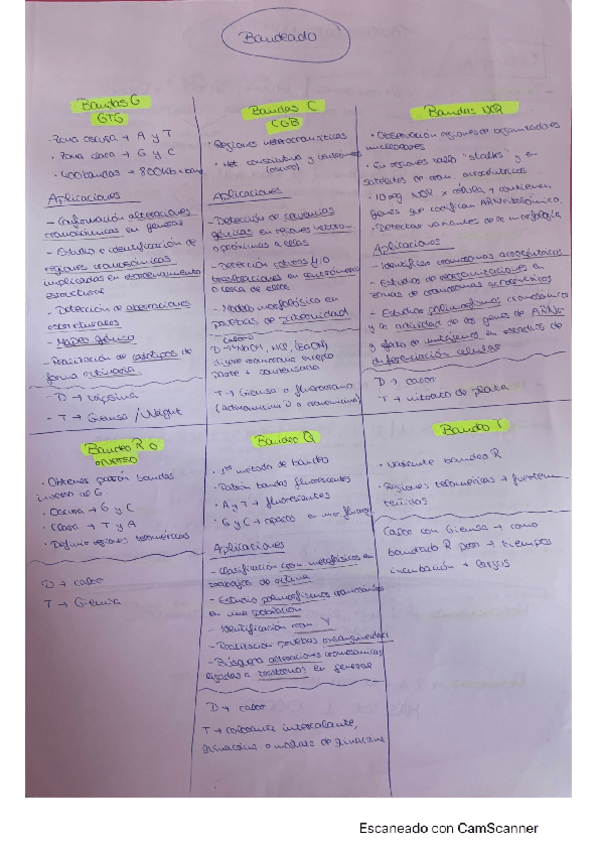 Bandeado
Bandas G
GTG
· Zona oscura → A y T
· Zona clara → G y C
· 400 bandas → 800
Aplicaciones
- Confirmación alteraciones
cromosómicas en general
- Estudio e identificación de
regiones cromosómicas
implicadas en
estructural
- Detección de aberraciones
estructurales
- Mapeo génico
- Realización de cariotipos de
forma rutinaria.
D → tripsina
- T → Giemsa / Wright
Bandas C
CGB
· Regiones heterocromáticas
· Het. constitutiva y centrómeros
(oscuro)
Aplicaciones
- Detección de
génicas en regiones
o próximas a ellas
- Detección
en centrómeros
o cerca de ellos
- Modelo morfológico en
pruebas de paternidad
calor o
D → NaOH, HCl, (BaOH)
T → Giemsa o fluorocromo
Bandas NOR
· Observación regiones de organizadores
nucleolares
· En regiones tallo "stalks" y en
satélites de crom. acrocéntricos
· 10 reg NOR x célula → contienen
genes que codifican ARN ribosómico.
· Detectar variantes de la morfología
Aplicaciones
- Identificar cromosomas acrocéntricos
- Estudios de reorganizaciones en
zonas de cromosomas acrocéntricos
- Estudios polimorfismos cromosómicos
y la actividad de los genes de ARNr
y fase de en estadios de
diferenciación celular
D → calor
T → nitrato de plata
Bandeo R o
inverso
· Obtenes patrón bandas
inverso de G.
· Oscura → G y C
· Clara → T y A
· Define regiones teloméricas
D → calor
T → Giemsa
Bandeo Q
· 1er método de bandeo
· Patrón bandas fluorescentes
· A y T → fluorescentes
· G y C → opacos en
Aplicaciones
- Clasificación crom. metafásicos en
trabajos de rutina
- Estudio polimorfismos cromosómicos
en una población
- Identificación crom. Y
- Realización pruebas
- Búsqueda alteraciones cromosómicas
ligadas a trastornos en general
D → calor
T → colorante intercalante,
quinacrina o mostaza de quinacrina
Bandeo T
· Variante bandeo R
· Regiones teloméricas → fuertem.
teñidas
Calor con Giemsa → como
bandeado R pero → tiempos
incubación + largos
Escaneado con CamScanner